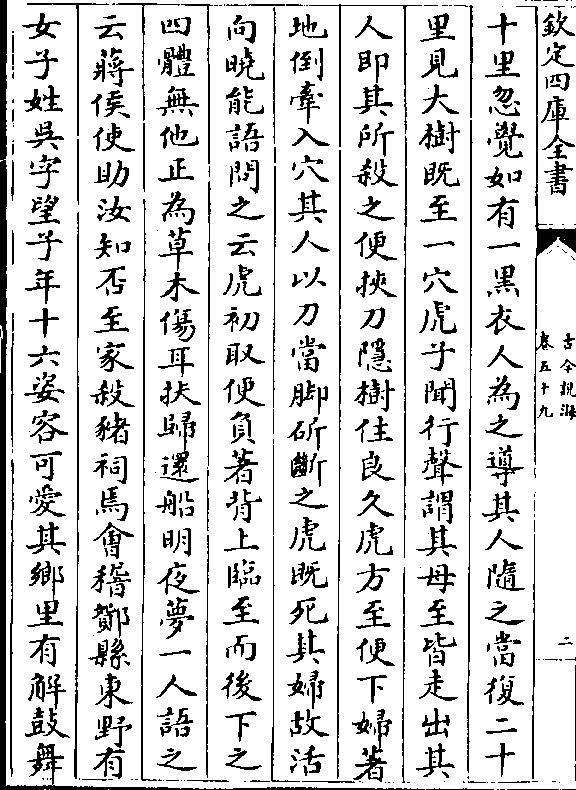 欽定四庫全書
古今說海
卷五十九
二
十里忽覺如有一黑衣人為之導其人隨之當復二十
里見大樹既至一穴虎子聞行聲謂其母至皆走出其
人即其所殺之便挾刀隱樹住良久虎方至便下婦著
地倒牽入穴其人以刀當脚斫斷之虎既死其婦故活
向曉能語問之云虎初取便負著背上臨至而後下之
四體無他正為草木傷耳扶歸還船明夜夢一人語之
云蔣侯使助汝知否至家殺豬祠焉會稽鄮縣東野有
女子姓吳字望子年十六姿容可愛其鄉里有解鼓舞